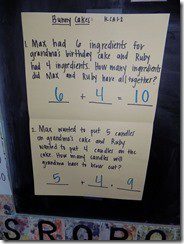 Bunny Cakes
K.OA.1-2
1. Max had 6 ingredients for
grandma's birthday cake and Ruby
had 4 ingredients. How many ingredients
did Max and Ruby have all together?
6 + 4 = 10
2. Max wanted to put 5 candles
on grandma's cake and Ruby
wanted to put 4 candles on the
cake. How many candles will
grandma have to blow out?
5 + 4 = 9
S R Q P O